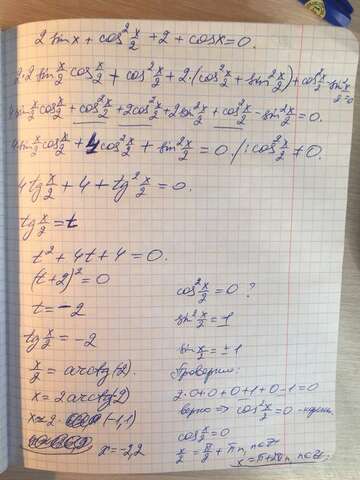 2 sinx + cos²x/2 + 2 + cosx = 0.
2·2 sin x/2 cos x/2 + cos² x/2 + 2·(cos² x/2 + sin² x/2) + cos² x/2 - sin² x/2 = 0
4 sin x/2 cos x/2 + cos² x/2 + 2cos² x/2 + 2sin² x/2 + cos² x/2 - sin² x/2 = 0.
4 sin x/2 cos x/2 + 4 cos² x/2 + sin² x/2 = 0 /: cos² x/2 ≠ 0.
4 tg x/2 + 4 + tg² x/2 = 0.
tg x/2 = t
t² + 4t + 4 = 0.
(t+2)² = 0
t = -2
tg x/2 = -2
x/2 = arctg(-2).
x = 2arctg(-2)
x ≈ 2· (-1,1)
x = -2,2
cos² x/2 = 0 ?
sin² x/2 = 1
sin x/2 = ±1
Проверим:
2·0+0+0+1+0-1=0
верно => cos² x/2 = 0
cos x/2 = 0
x/2 = π/2 + πn, n∈Z
x = π+2πn, n∈Z